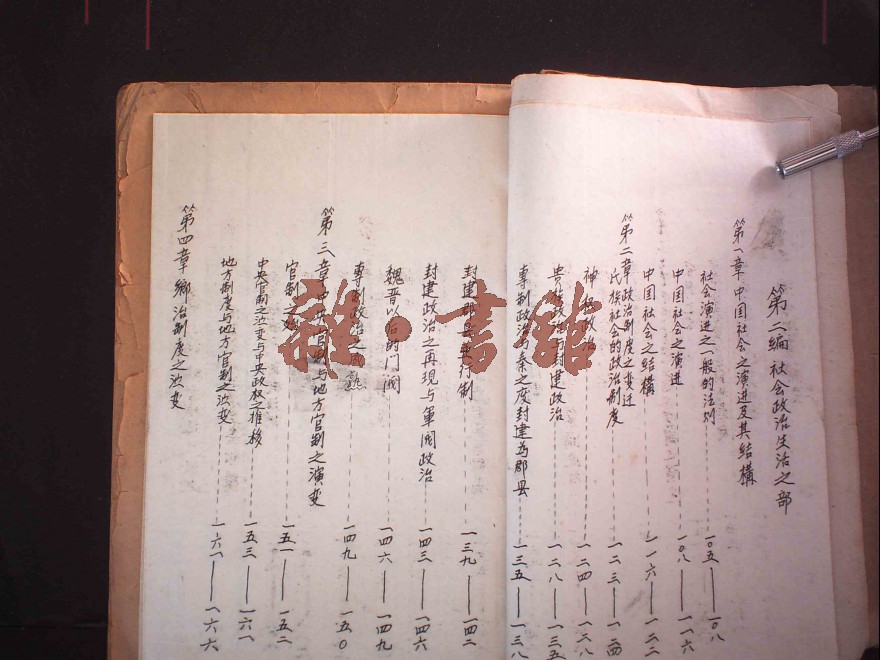 第二编 社会政治生活之部
第一章 中国社会之演进及其结構
社会演进之一般的法则 一〇五——一〇八
中国社会之演进 一〇八——一一六
中国社会之结構 一一六——一二二
第二章 政治制度之变迁
氏族社会的政治制度 一二三——一二四
神权政治 一二四——一二八
贵族政治与封建政治 一二八——一三五
專制政治与秦之廢封建為郡县 一三五——一三八
封建郡县並行制 一三九——一四二
封建政治之再现与軍阀政治 一四三——一四六
魏晋以后的门阀 一四六——一四九
專制政治之成熟 一四九——一五〇
第三章 官制与地方官制之演变
官制之 一五一——一五二
中央官制之演变与中央政权之推移 一五三——一六一
地方制度与地方官制之演变 一六一——一六六
第四章 鄉治制度之演变
雜·書舘